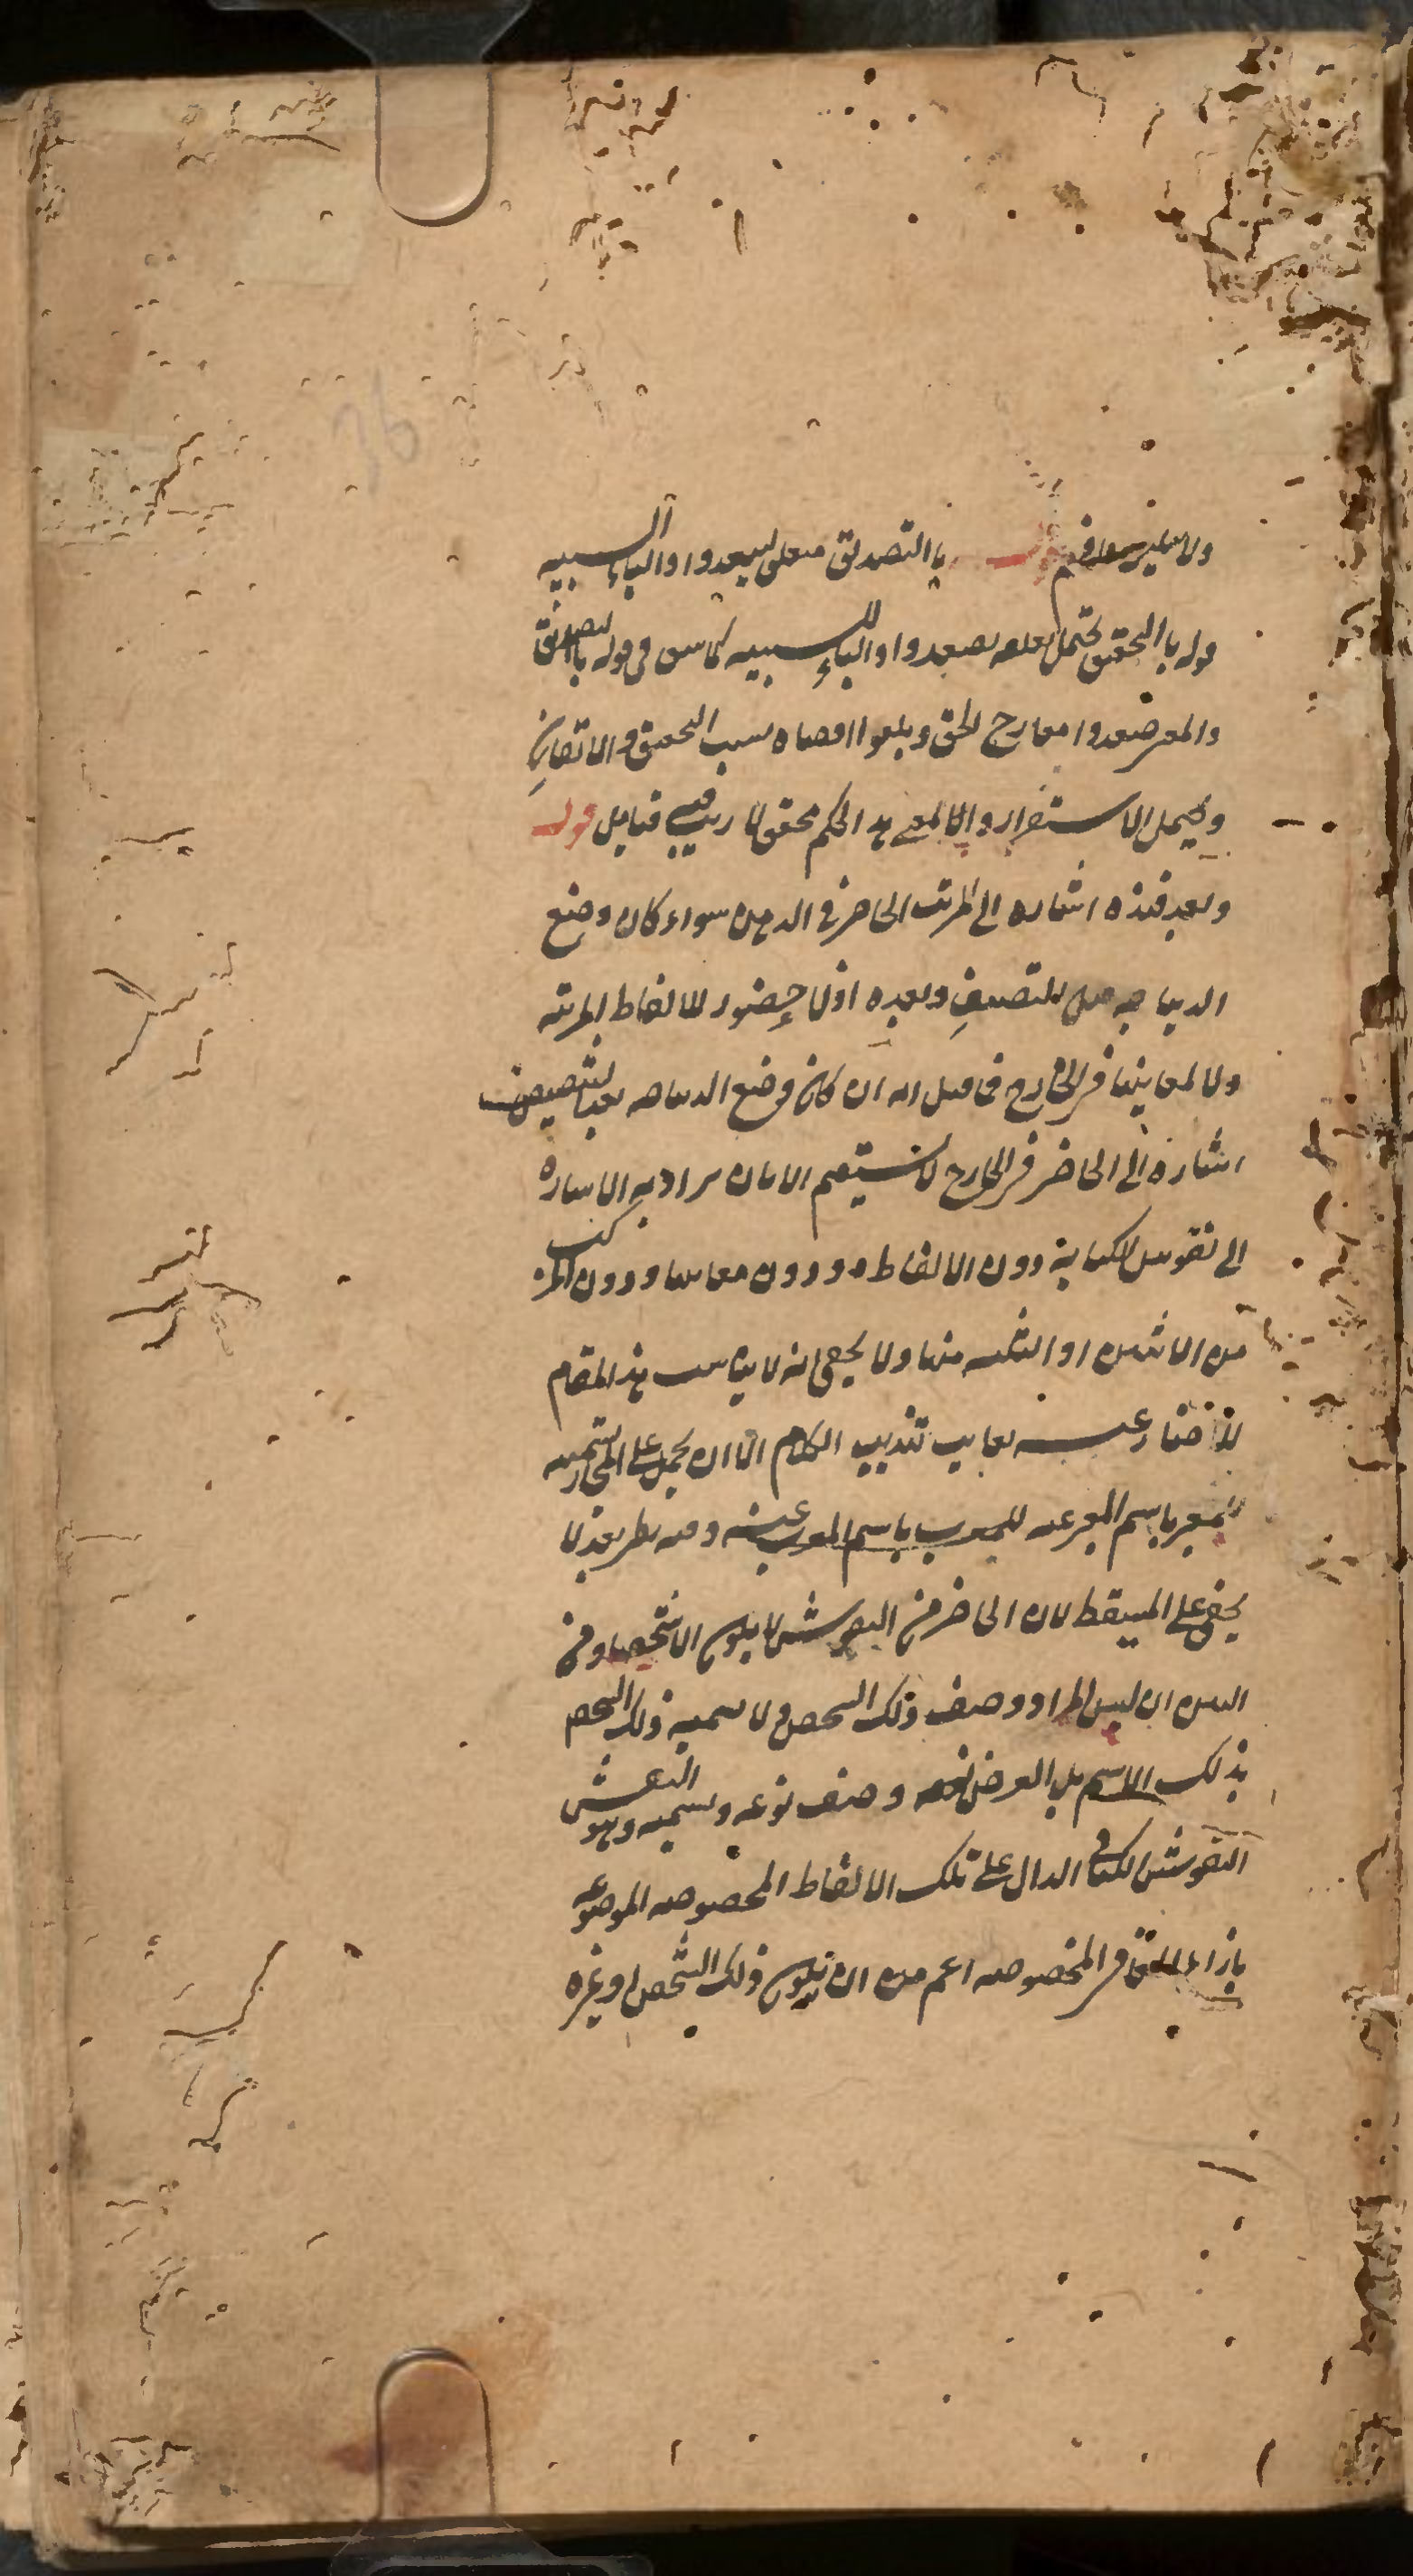 قوله بالتصديق متعلق لسعدوا والباء للسببيه
قوله بالتحقيق يحتمل تعلقه بصعدوا والباء للسببيه كما سبق في قوله بالتصديق
والمعنى صعدوا معارج الحق وبلغوا اقصاه بسبب التحقيق والاتقان
ويحتمل الاستقرار والمعنى هذا الحكم محقق لا ريب فيه فتامل قوله
وبعد فهذه اشاره الى المرتب الحاضر في الذهن سواء كان وضع
الديباجه قبل التصنيف وبعده اذ لا حضور للالفاظ المرتبه
ولا لمعانيها في الخارج فما قيل انه ان كان وضع الديباجه بعد التصنيف
اشارة الى الحاضر في الخارج لا يستقيم الا بان يراد به الاشارة
الى نقوش الكتابة دون الالفاظ ودون معانيها ودون المركب
من الاثنين او الثلثه منها ولا يخفى انه لا يناسب هذا المقام
للاخبار عنه بغايت تهذيب الكلام الا ان يحمل على المجاز تسميه
للمعبر باسم المعبر عنه وفيه نظر بعد لا
يخفى على المتيقظ لان الحاضر من النقوش لا يكون الا شخصا ومن
البين ان ليس المراد وصف ذلك الشخص ولا تسميه ذلك الشخص
بذلك الاسم بل الغرض وصف نوعه وتسميته وهو النقش
النقوش الكتابي الدال على تلك الالفاظ المخصوصه الموضوعه
بازاء المعاني المخصوصه اعم من ان يكون ذلك الشخص او غيره